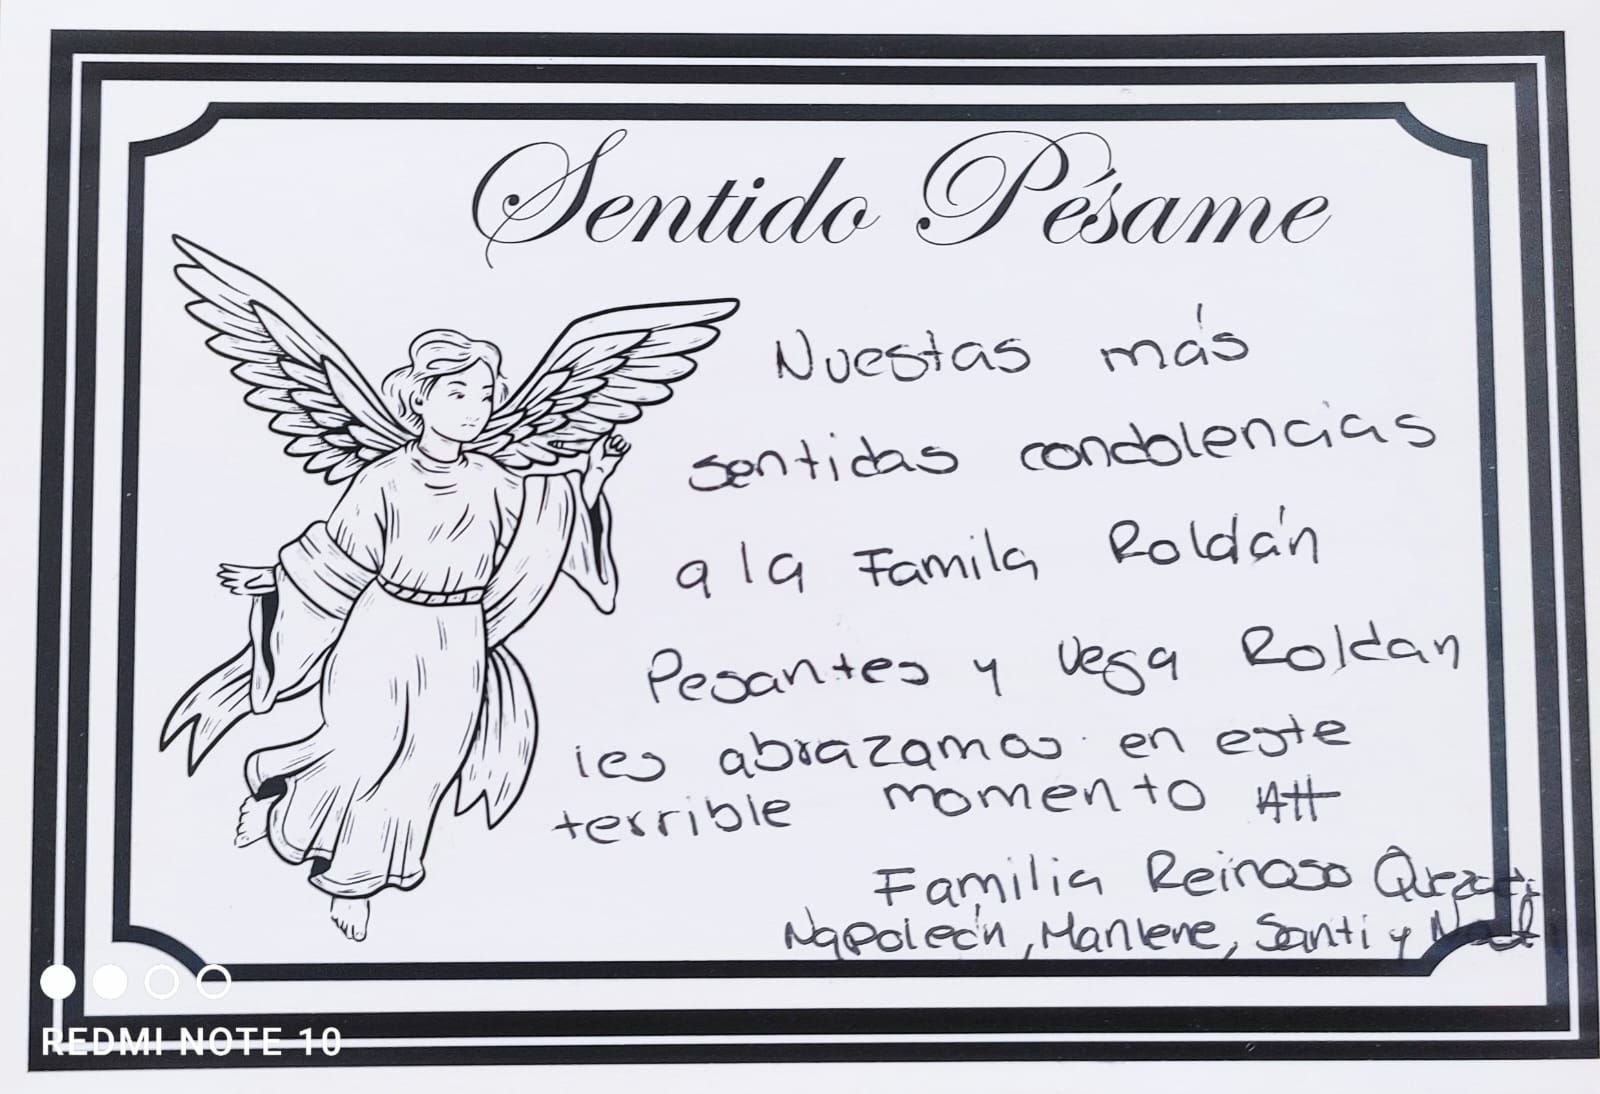 Sentido Pésame
Nuestas más
sentidas condolencias
a la Famila Roldán
Pesantes y Vega Roldan
les abrazamos en este
terrible momento Att
Familia Reinoso
Napoleón, Marlene, Santi y
REDMI NOTE 10